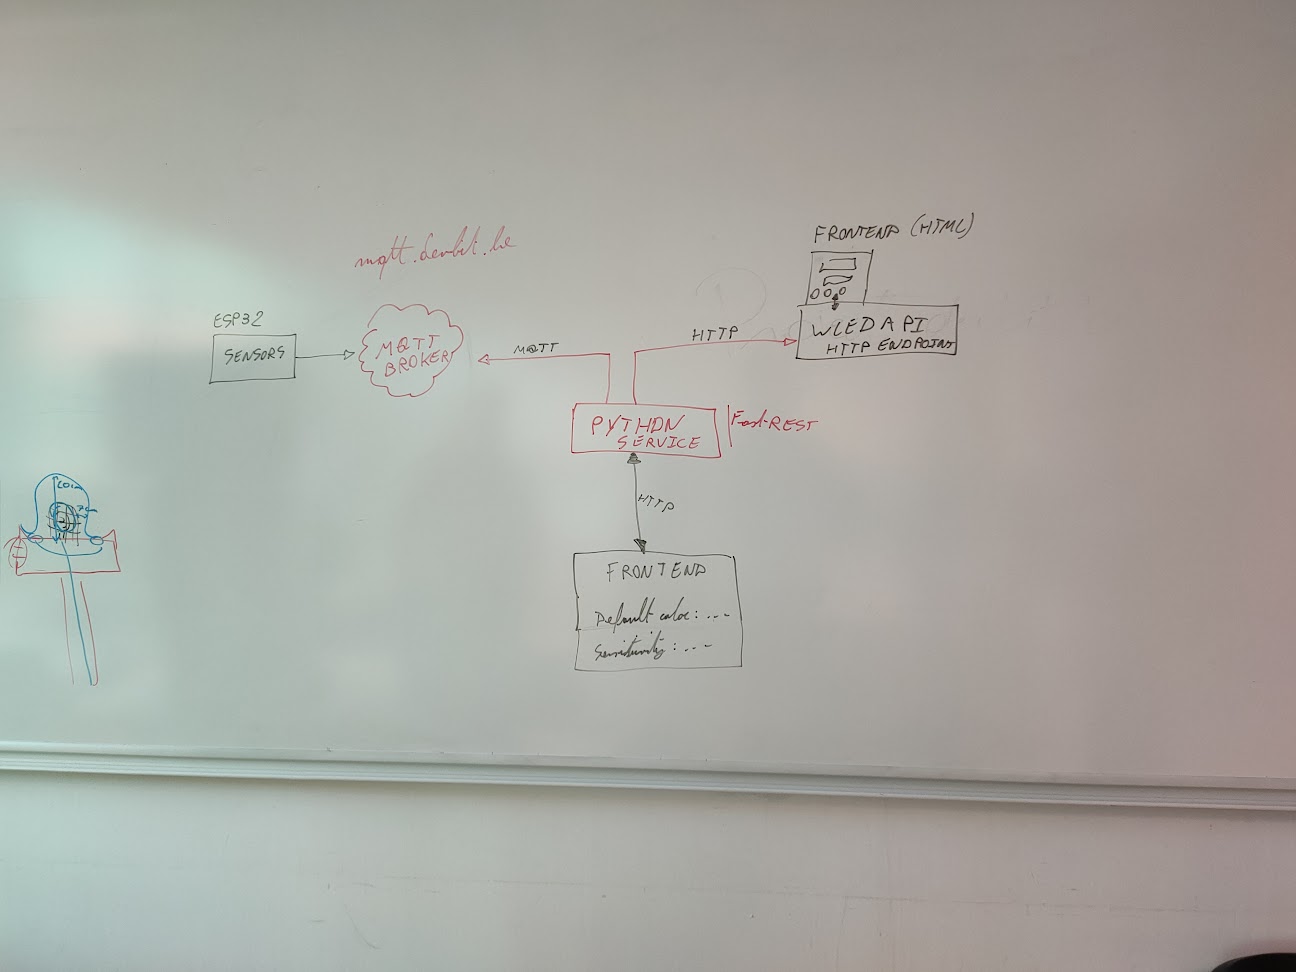 mqtt.devbit.be
FRONTEND (HTML)
ESP32
SENSORS
MQTT
BROKER
MQTT
HTTP
WLED API
HTTP ENDPOINT
PYTHON
SERVICE
Fast-REST
HTTP
FRONTEND
Default color: ...
Sensitivity: ...